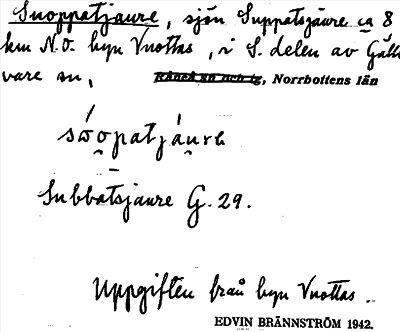 Snoppatjaure, sjön Suppatsjaure ca 8
km N.O. byn Vuottas, i S. delen av Gälli-
vare sn, Råneå sn och tg, Norrbottens län
Subbatsjaure G. 29.
Uppgiften från byn Vuottas.
EDVIN BRÄNNSTRÖM 1942.